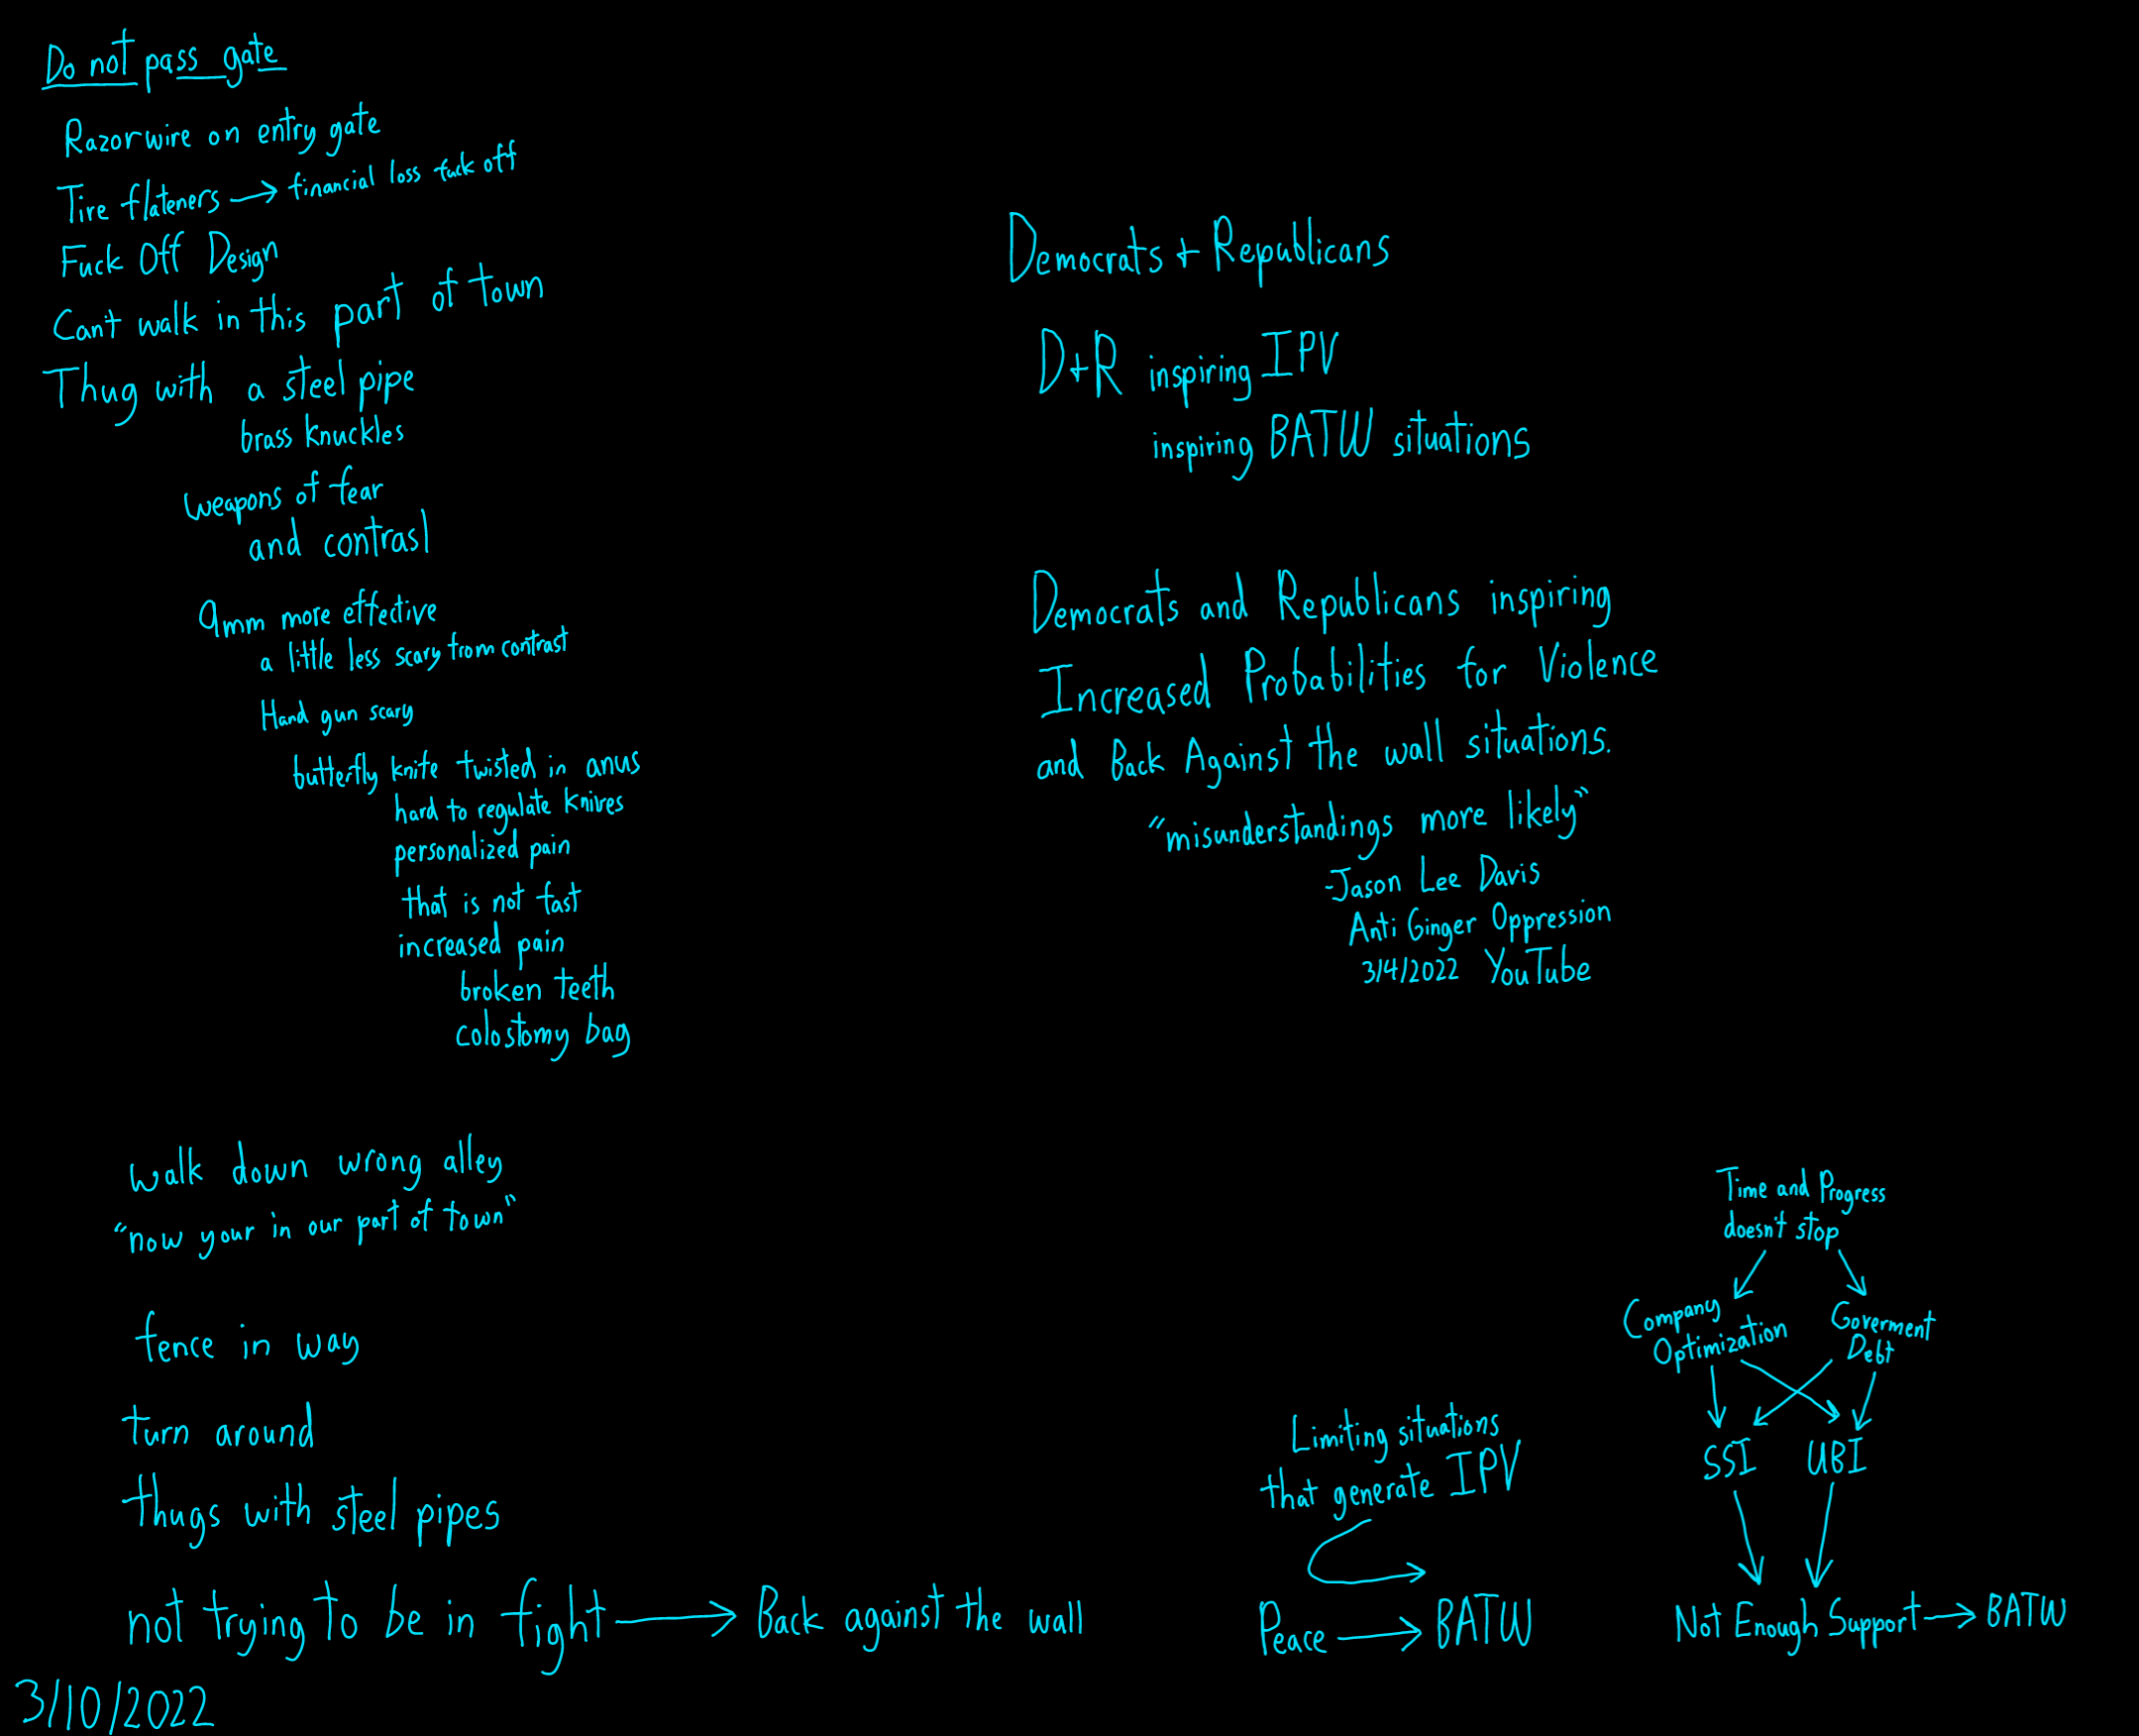 Do not pass gate
Razorwire on entry gate
Tire flateners → financial loss fuck off
Fuck Off Design
Can't walk in this part of town
Thug with a steel pipe
brass knuckles
weapons of fear
and contrast
9mm more effective
a little less scary from contrast
Hand gun scary
butterfly knife twisted in anus
hard to regulate knives
personalized pain
that is not fast
increased pain
broken teeth
colostomy bag
walk down wrong alley
"now your in our part of town"
fence in way
turn around
thugs with steel pipes
not trying to be in fight → Back against the wall
3/10/2022
Democrats + Republicans
D+R inspiring IPV
inspiring BATW situations
Democrats and Republicans inspiring
Increased Probabilities for Violence
and Back Against the wall situations.
"misunderstandings more likely"
-Jason Lee Davis
Anti Ginger Oppression
3/4/2022 YouTube
Limiting situations
that generate IPV
Peace → BATW
Time and Progress
doesn't stop
Company
Optimization
Goverment
Debt
SSI UBI
Not Enough Support → BATW